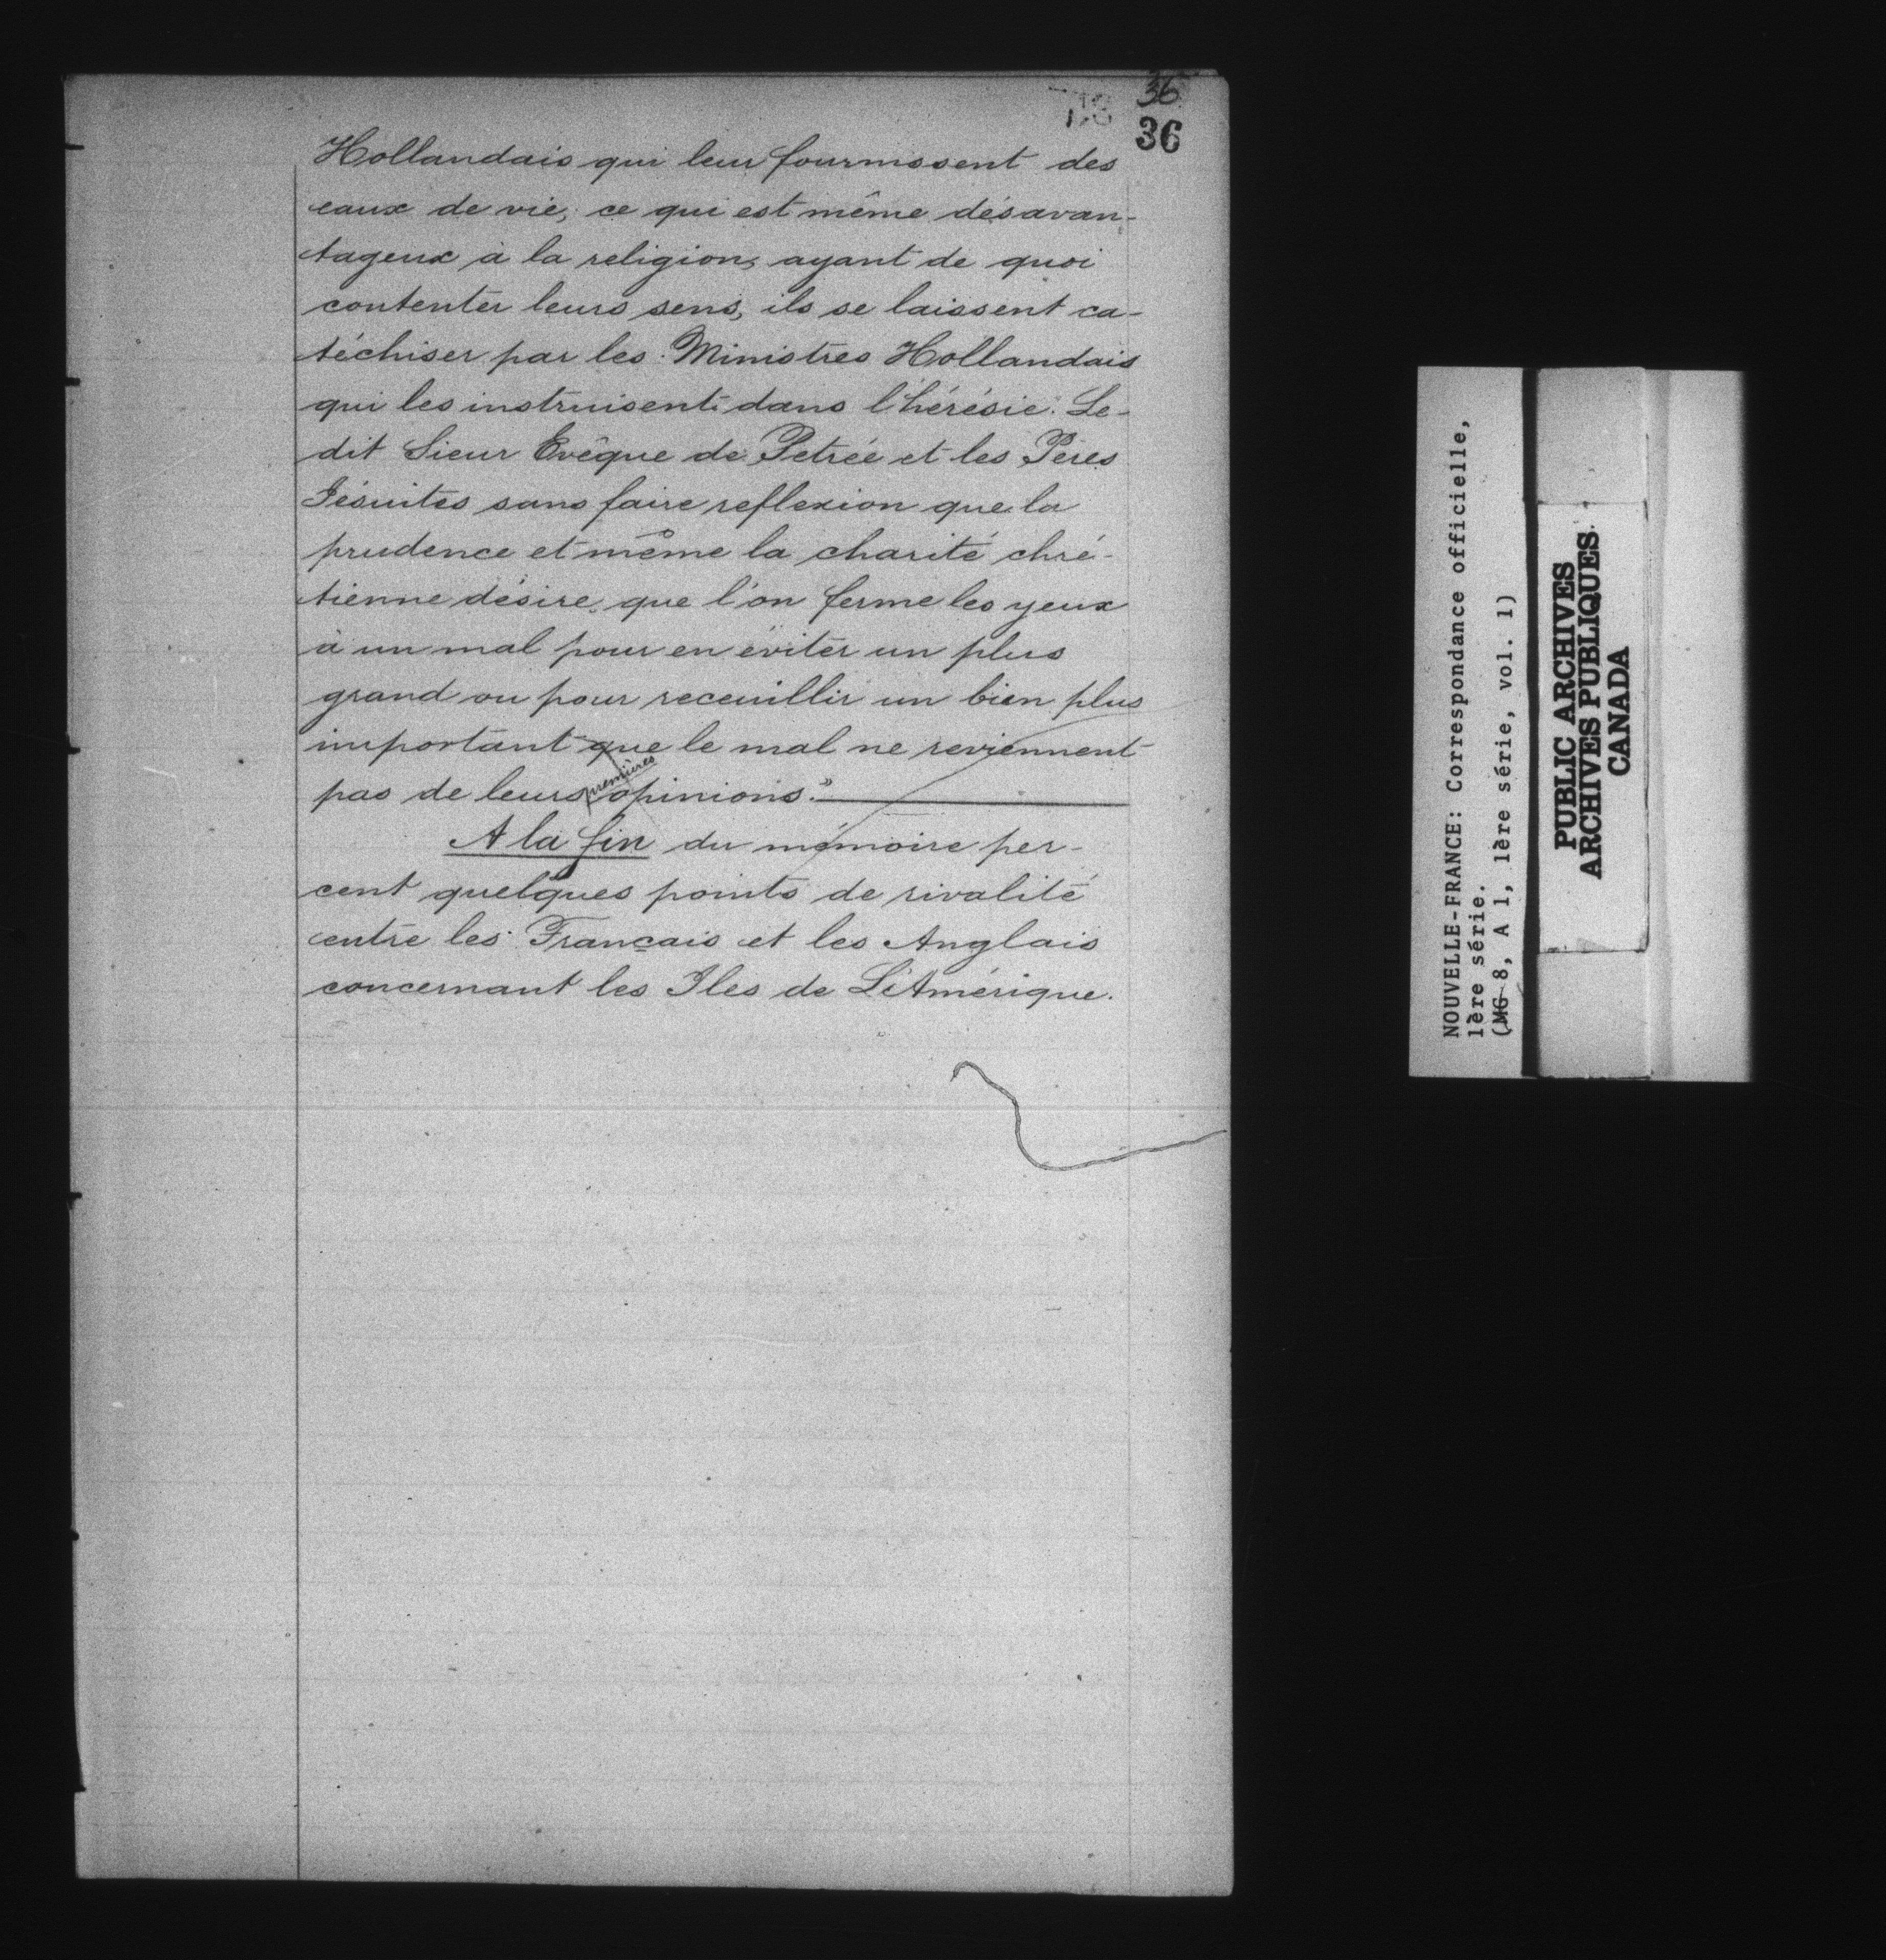 36
36
Hollandais qui leur fournissent des
eaux de vie, ce qui est même désavan-
tageux à la religion, ayant de quoi
contenter leurs sens, ils se laissent ca-
téchiser par les Ministres Hollandais
qui les instruisent dans l'hérésie. Le-
dit Sieur Evêque de Petrée et les Pères
Jésuites sans faire reflexion que la
prudence et même la charité chré-
tienne désire, que l'on ferme les yeux
à un mal pour en éviter un plus
grand ou pour receuillir un bien plus
important que le mal ne reviennent
pas de leurs premières opinions."
A la fin du mémoire per-
cent quelques points de rivalité
entre les Français et les Anglais
concernant les Iles de L'Amérique.
NOUVELLE-FRANCE: Correspondance officielle,
1ère série.
(MG 8, A 1, 1ère série, vol. 1)
PUBLIC ARCHIVES
ARCHIVES PUBLIQUES
CANADA